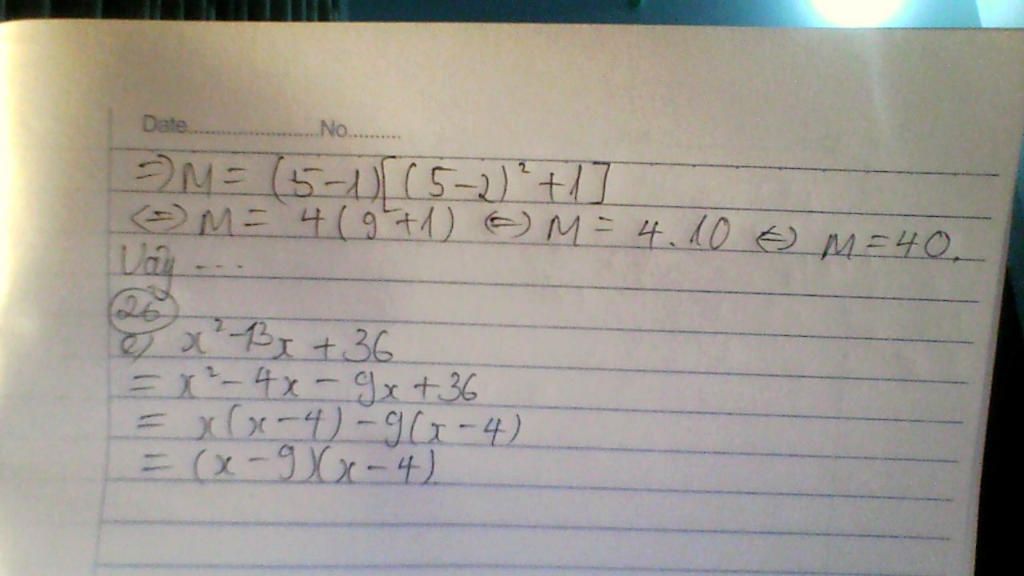 Date........................No..........
=> M = (5-1)[(5-2)² +1]
<=> M = 4(9+1) <=> M = 4.10 <=> M = 40.
Vậy ...
26
e) x² - 13x + 36
= x² - 4x - 9x + 36
= x(x-4) - 9(x-4)
= (x-9)(x-4)